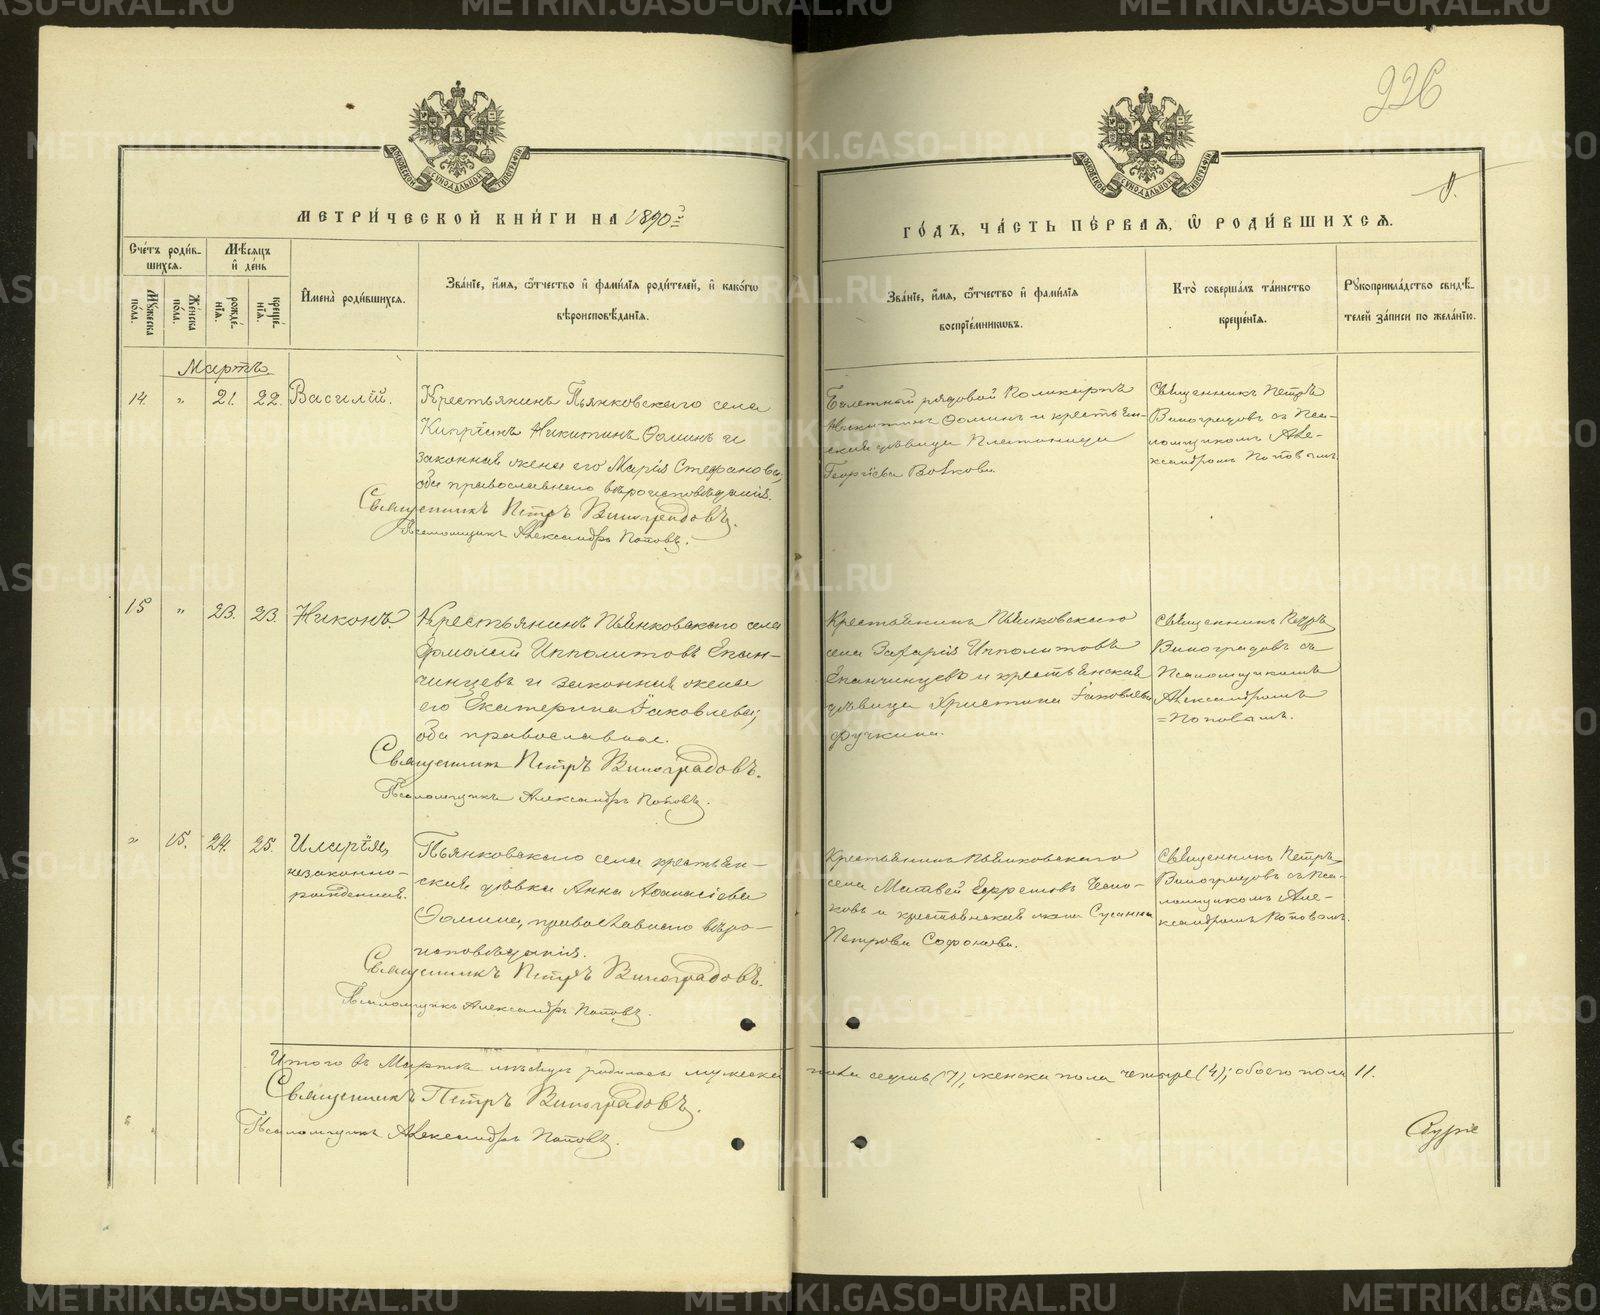 226
9.
МОСКОВСКОЙ СѴНОДАЛЬНОЙ ТИПОГРАФІИ
МОСКОВСКОЙ СѴНОДАЛЬНОЙ ТИПОГРАФІИ
МЕТРИ́ЧЕСКОЙ КНИ́ГИ НА 1890й
ГО́ДЪ, ЧА́СТЬ ПЕ́РВАЯ, Ѡ РОДИ́ВШИХСѦ.
Сче́тъ роди́в-
шихся.
Мꙋжеска по́ла.
Же́нска по́ла.
Мѣ́сяцъ
и҆ де́нь
рожде́-
нїя.
креще́-
нїя.
И҆мена̀ роди́вшихся.
Зва́нїе, и҆́мя, ѻ҆́тчество и҆ фами́лїя роди́телей, и҆ како́гѡ
вѣроисповѣ́данїя.
Зва́нїе, и҆́мя, ѻ҆́тчество и҆ фами́лїя
воспрїе́мникѡвъ.
Кто̀ соверша́лъ та́инство
креще́нїя.
Рꙋкоприкла́дство свидѣ́-
телей за́писи по жела́нїю.
Мартъ.
14. " 21. 22. Василій.
Крестьянинъ Пьянковскаго села
Кипріанъ Никитинъ Ѳоминъ и
законная жена его Марія Стефанова,
оба православнаго вѣроисповѣданія.
Священникъ Петръ Виноградовъ.
Псаломщикъ Александръ Поповъ.
Билетный рядовой Поликарпъ
Никитинъ Ѳоминъ и крестьян-
ская дѣвица Платонида
Георгіева Волкова.
Священникъ Петръ
Виноградовъ съ Пса-
ломщикомъ Але-
ксандромъ Поповымъ.
15 " 23. 23. Никонъ.
Крестьянинъ Пьянковскаго села
Ермолай Ипполитовъ Епан-
чинцевъ и законная жена
его Екатерина Іаковлева,
оба православные.
Священникъ Петръ Виноградовъ.
Псаломщикъ Александръ Поповъ.
Крестьянинъ Пьянковскаго
села Захарія Ипполитовъ
Епанчинцевъ и крестьянская
дѣвица Христина Іаковлева
Священникъ Петръ
Виноградовъ съ
Псаломщикомъ
Александромъ
=Поповымъ.
" 15. 24. 25. Иларія,
незаконно-
рожденная.
Пьянковскаго села крестьян-
ская дѣвка Анна Аѳанасіева
Ѳомина, православнаго вѣро-
исповѣданія.
Священникъ Петръ Виноградовъ.
Псаломщикъ Александръ Поповъ.
Крестьянинъ Пьянковскаго
села Матвей Ефремовъ Чесно-
ковъ и крестьянская жена Сусанна
Петрова Софонова.
Священникъ Петръ
Виноградовъ съ Пса-
ломщикомъ Але-
ксандромъ Поповымъ.
Итого въ Мартѣ мѣсяцѣ родилось мужеска пола семь (7), женска пола четыре (4); обоего пола 11.
Священникъ Петръ Виноградовъ.
Псаломщикъ Александръ Поповъ.
METRIKI.GASO-URAL.RU